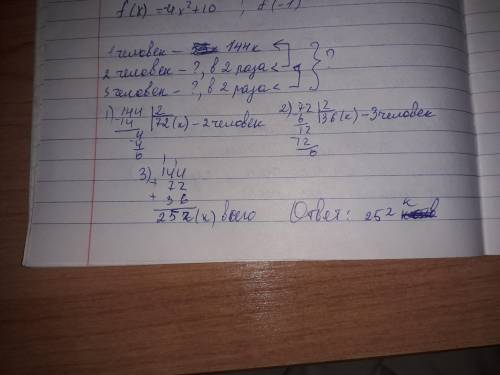 f(x) = 4x²+10 ; f(-1)
1 человек – 144к
2 человек – ?, в 2 раза <
3 человек – ?, в 2 раза <
?
1) 144 | 2
14 | 72 (к) – 2 человек
4
4
0
2) 72 | 2
6 | 36 (к) – 3 человек
12
12
0
3) 144
+ 72
+ 36
252 (к) всего
Ответ: 252 к